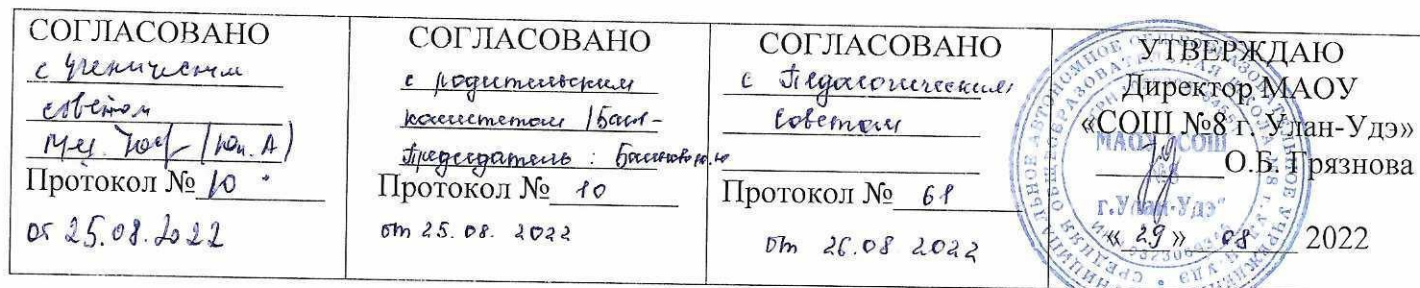 СОГЛАСОВАНО
с ученическим
советом
Протокол № 10
от 25.08.2022
СОГЛАСОВАНО
с родительским
комитетом
Председатель :
Протокол № 10
от 25.08. 2022
СОГЛАСОВАНО
с Педагогическим
советом
Протокол № 61
от 26.08 2022
УТВЕРЖДАЮ
Директор МАОУ
«СОШ №8 г. Улан-Удэ»
О.Б. Грязнова
« 29 » 08 2022
МАОУ "СОШ
№8
г.Улан-Удэ"